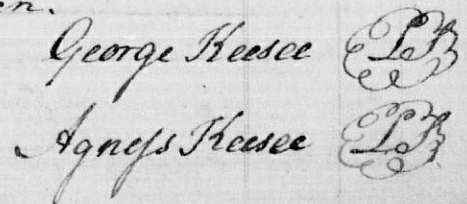 en.
George Keesee LS
Agness Keesee LS